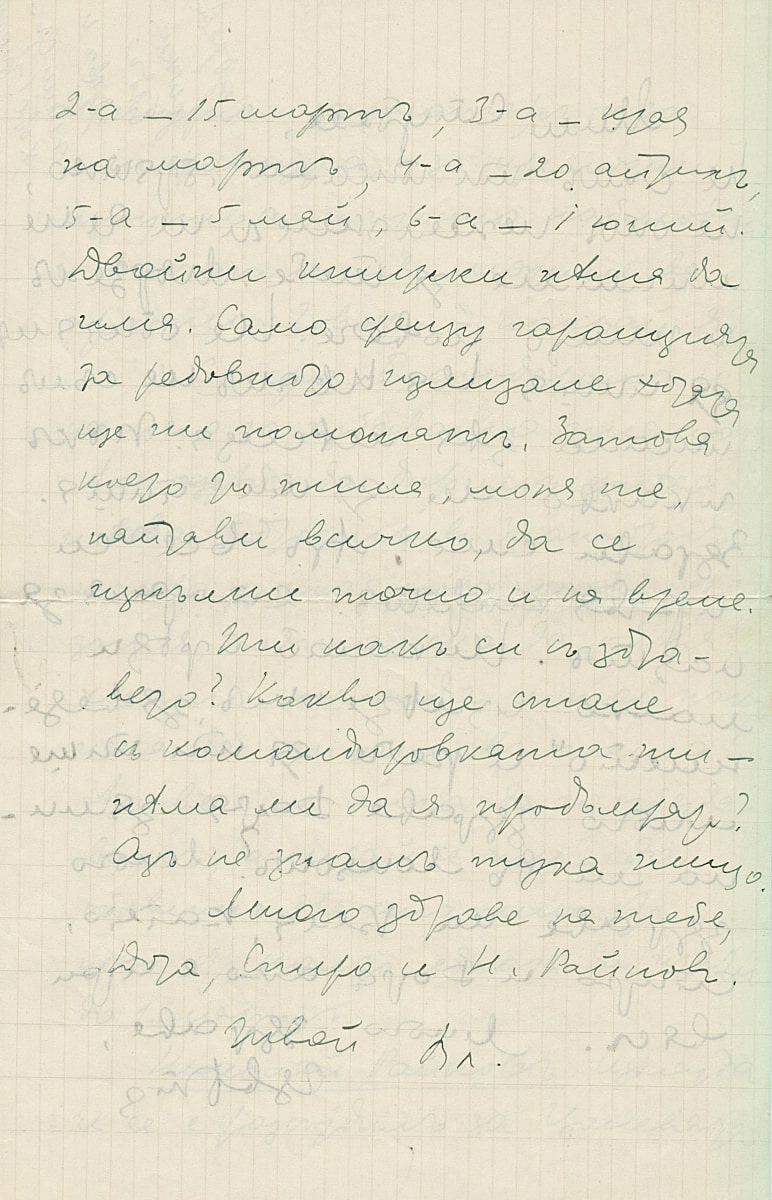 2-а — 15 мартъ, 3-а — края
на мартъ, 4-а — 20 априлъ,
5-а — 5 май, 6-а — 1 юний.
Двойни книжки нѣма да
има. Само срещу гаранция
за редовното излизане хората
ще ни помогнатъ. Затова
което ти пиша, моля те,
направи всичко, да се
изпълни точно и на време.
Ти какъ си съ здра-
вето? Какво ще стане
съ командировката ти —
нѣма ли да я продължатъ?
Азъ не знамъ тука нищо.
Много здраве на тебе,
Дора, Спиро и Н. Райновъ.
Твой Вл.